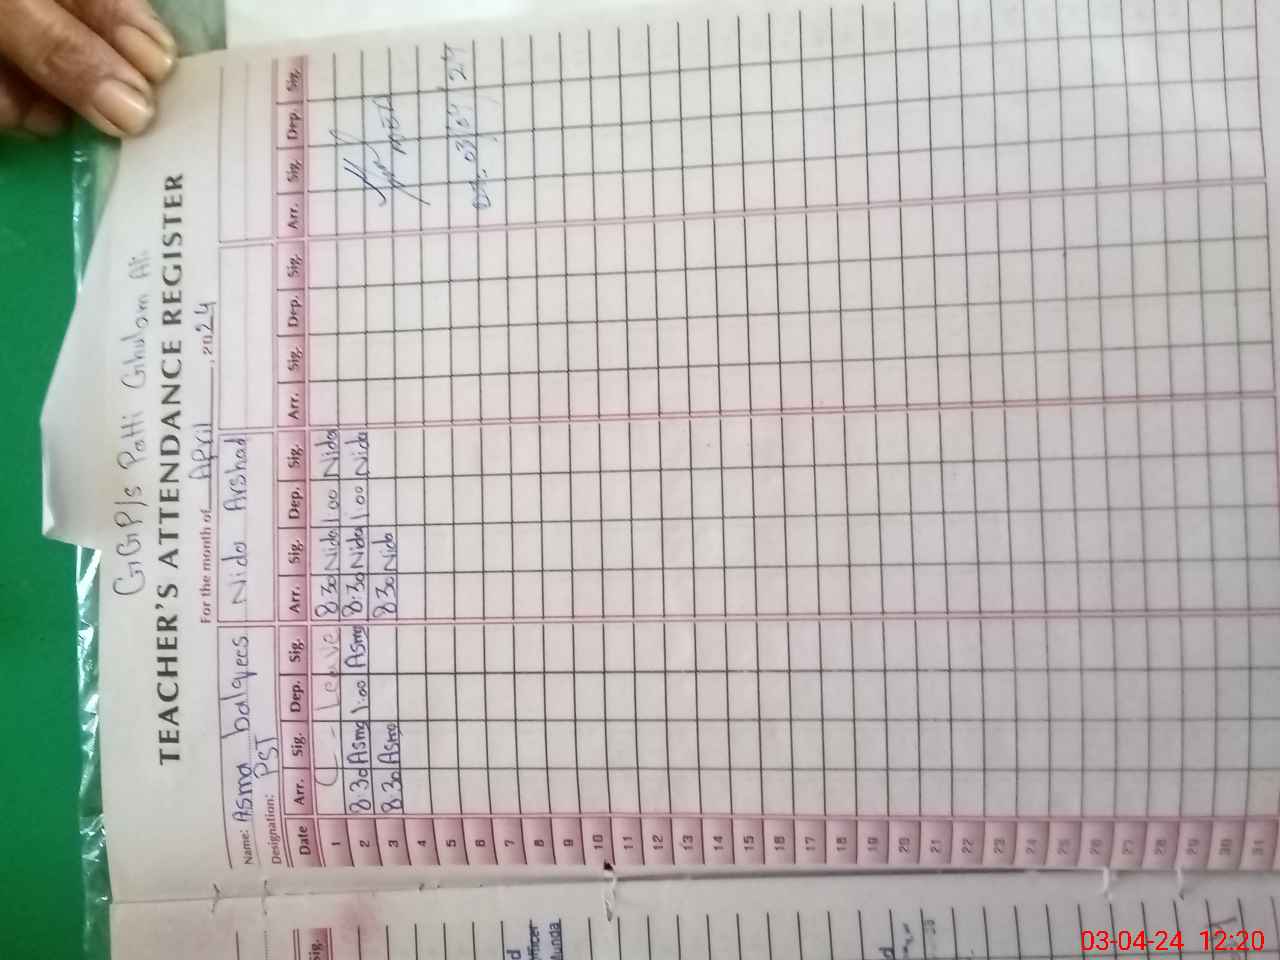 GGP/s Patti Ghulam Ali
TEACHER'S ATTENDANCE REGISTER
For the month of April, 2024
Name: Asma balqees Nida Arshad
Designation: PST
Date Arr. Sig. Dep. Sig. Arr. Sig. Dep. Sig. Arr. Sig. Dep. Sig. Arr. Sig. Dep. Sig.
1 L - Leave 8:30 Nida 1:00 Nida
2 8:30 Asma 1:00 Asma 8:30 Nida 1:00 Nida
3 8:30 Asma 8:30 Nida
4
5
6 03/04/24
7
8
9
10
11
12
13
14
15
16
17
18
19
20
21
22
23
24
25
26
27
28
29
30
31
Sig.
03-04-24 12:20